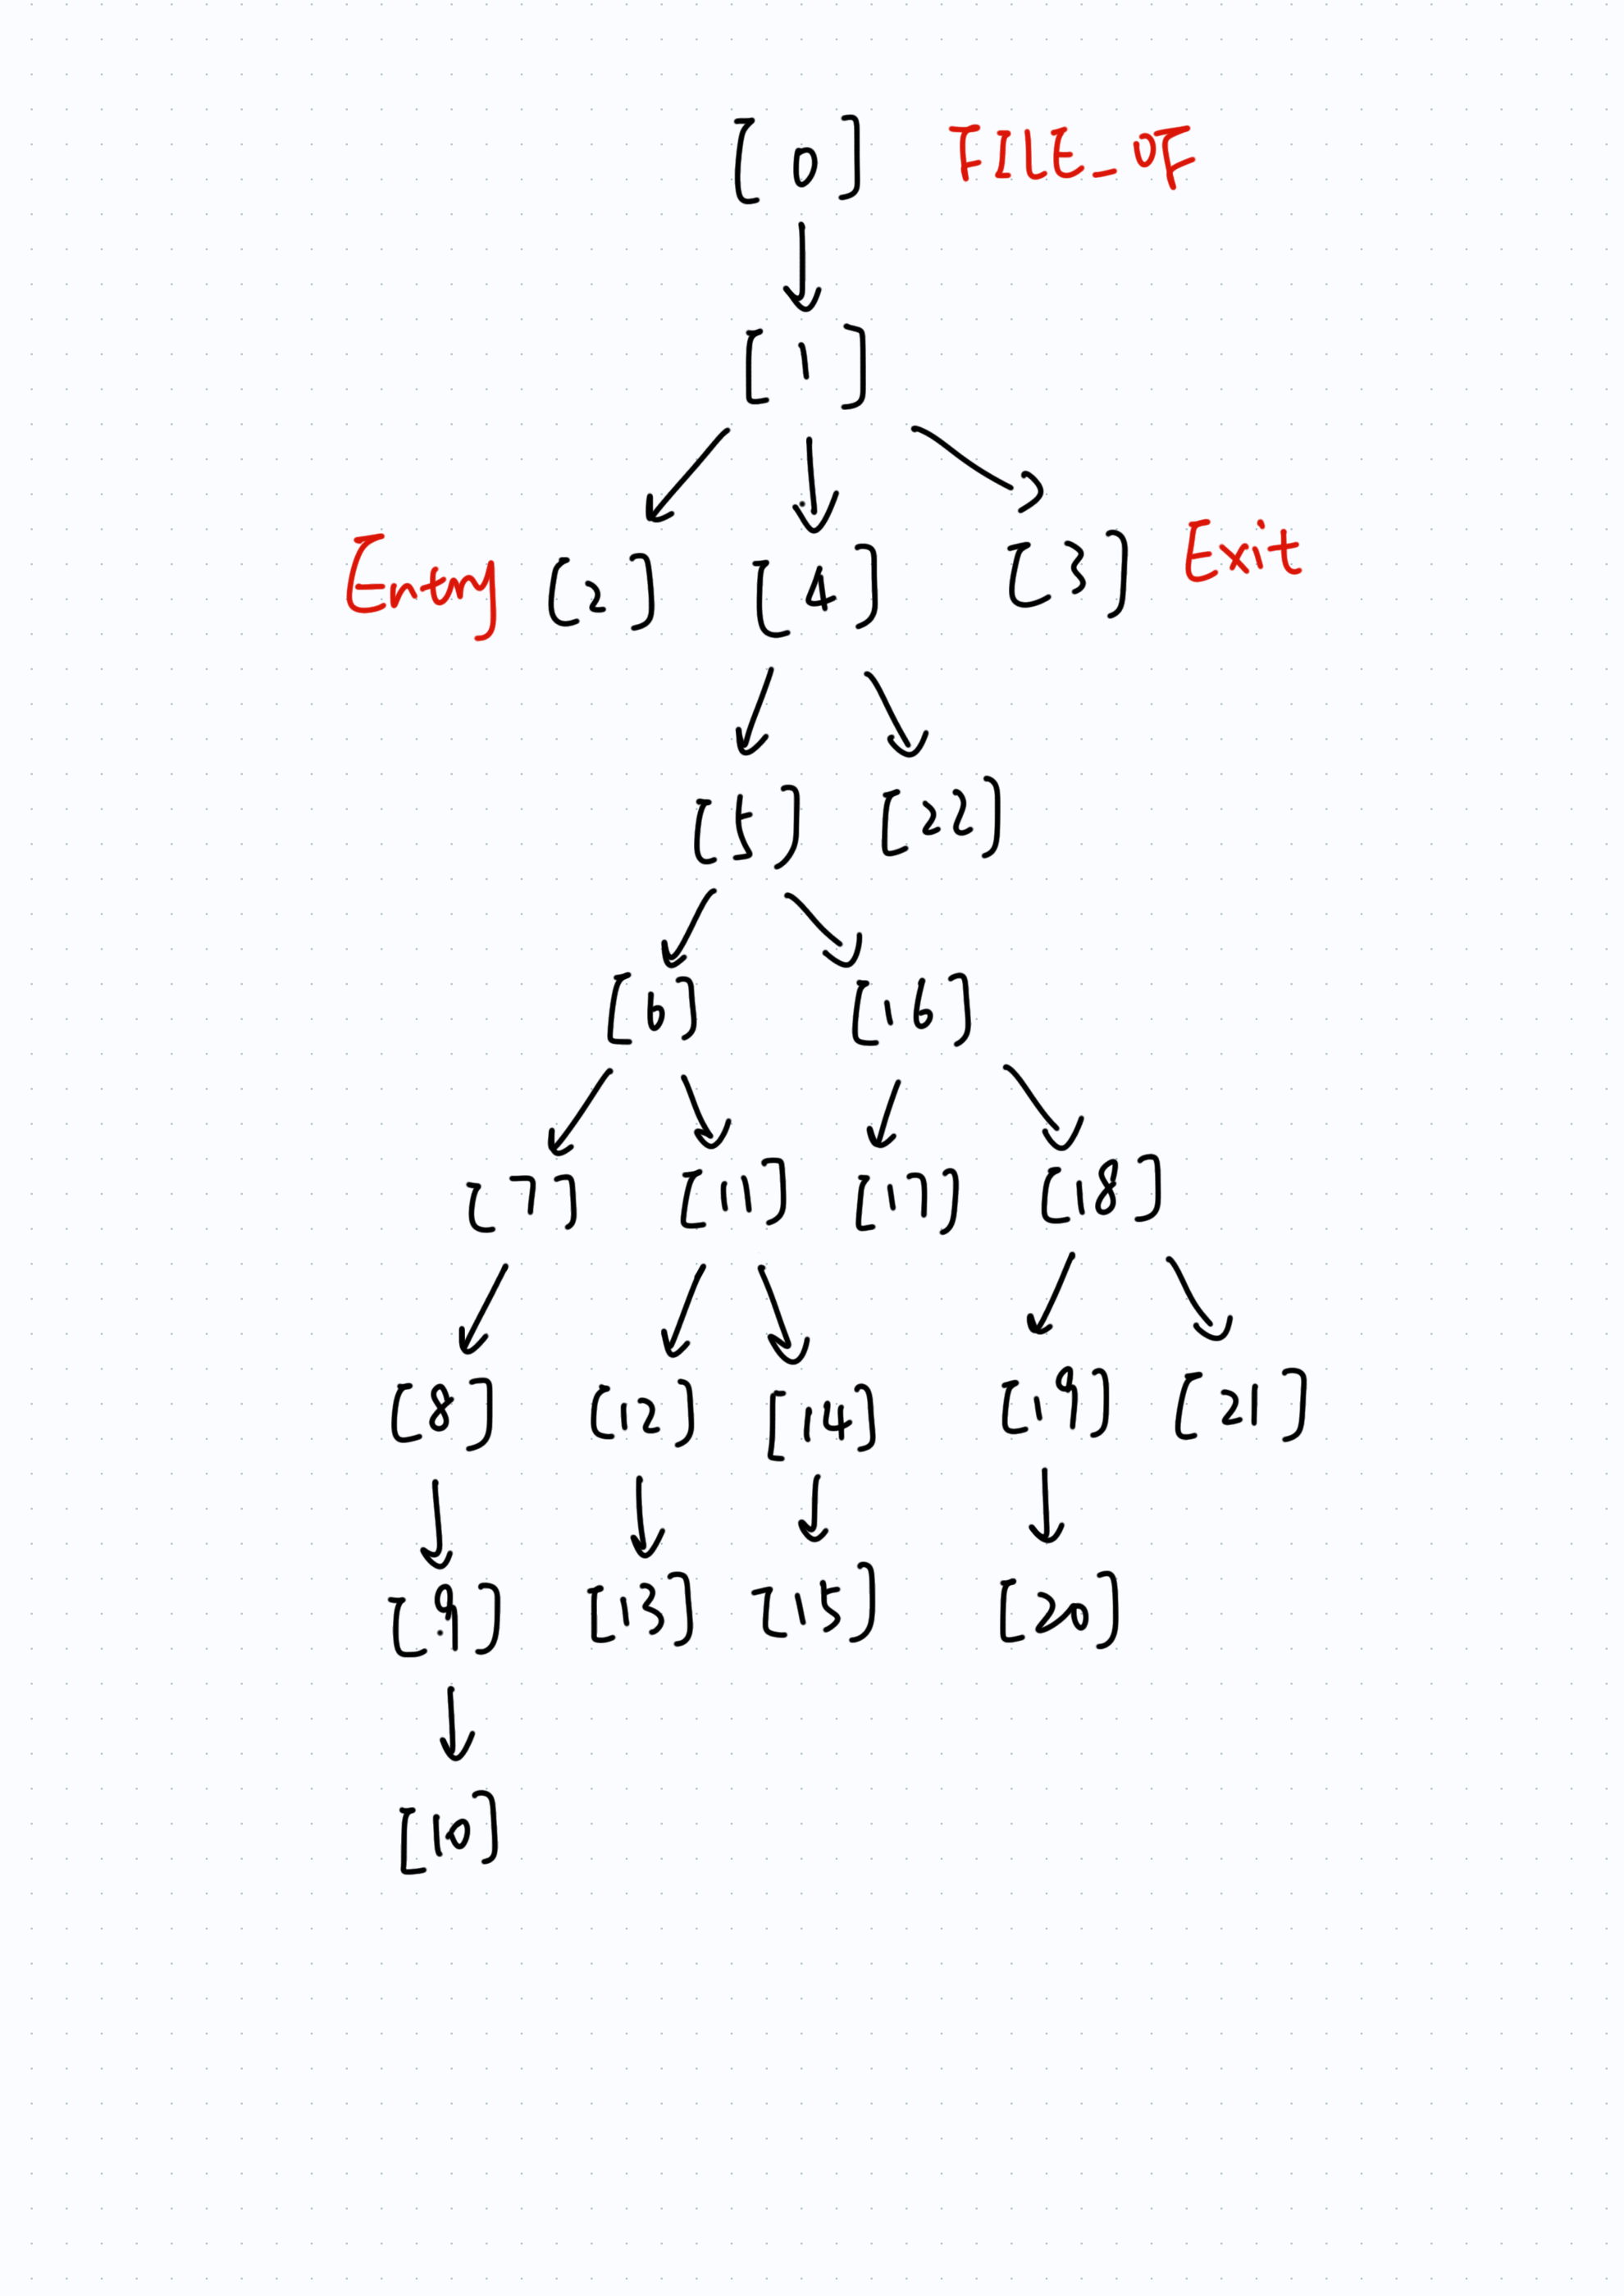 [ 0 ] FILE_OF
[ 1 ]
Entry [ 2 ] [ 4 ] [ 3 ] Exit
[ 5 ] [ 22 ]
[ 6 ] [ 16 ]
[ 7 ] [ 11 ] [ 17 ] [ 18 ]
[ 8 ] [ 12 ] [ 14 ] [ 19 ] [ 21 ]
[ 9 ] [ 13 ] [ 15 ] [ 20 ]
[ 10 ]